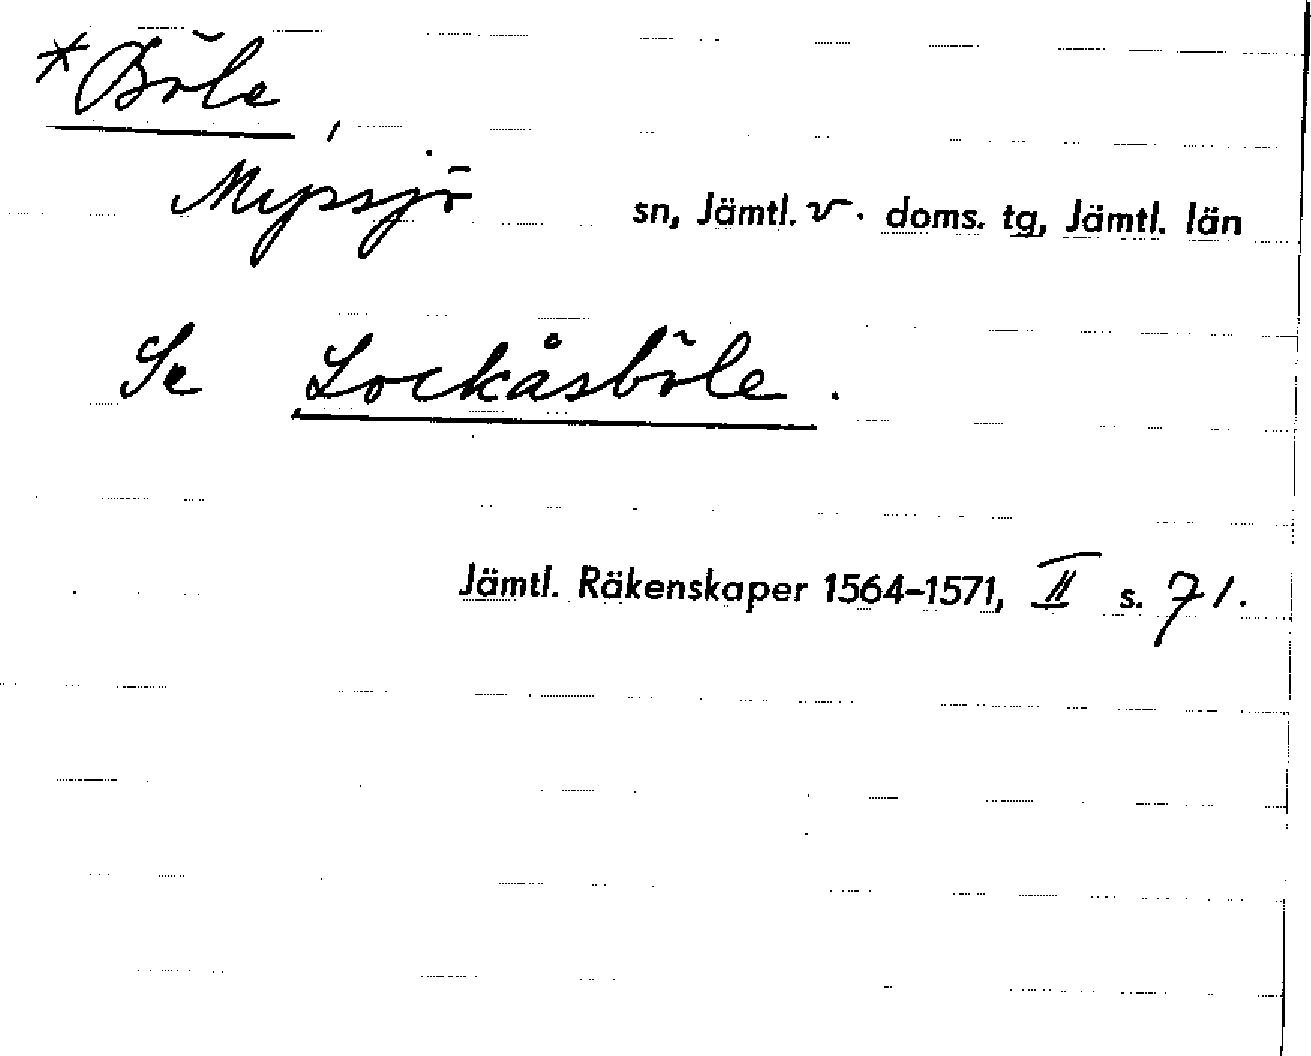 *Böle,
Myssjö sn, Jämtl. v. doms. tg, Jämtl. län
Se Lockåsböle.
Jämtl. Räkenskaper 1564–1571, II s. 71.